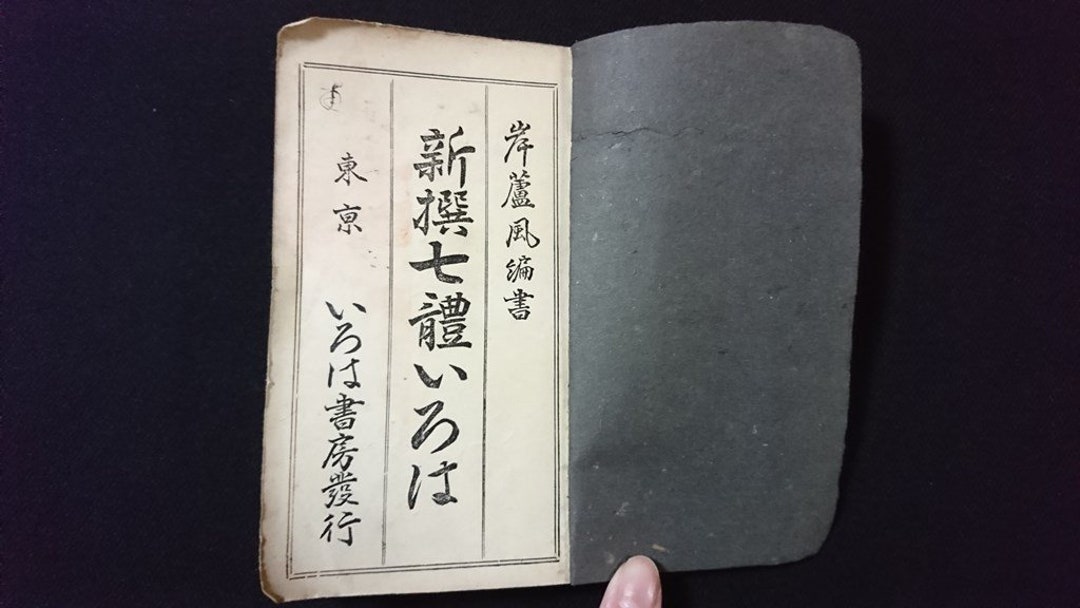 岸蘆風編書
新撰七體いろは
東亰 いろは書房發行